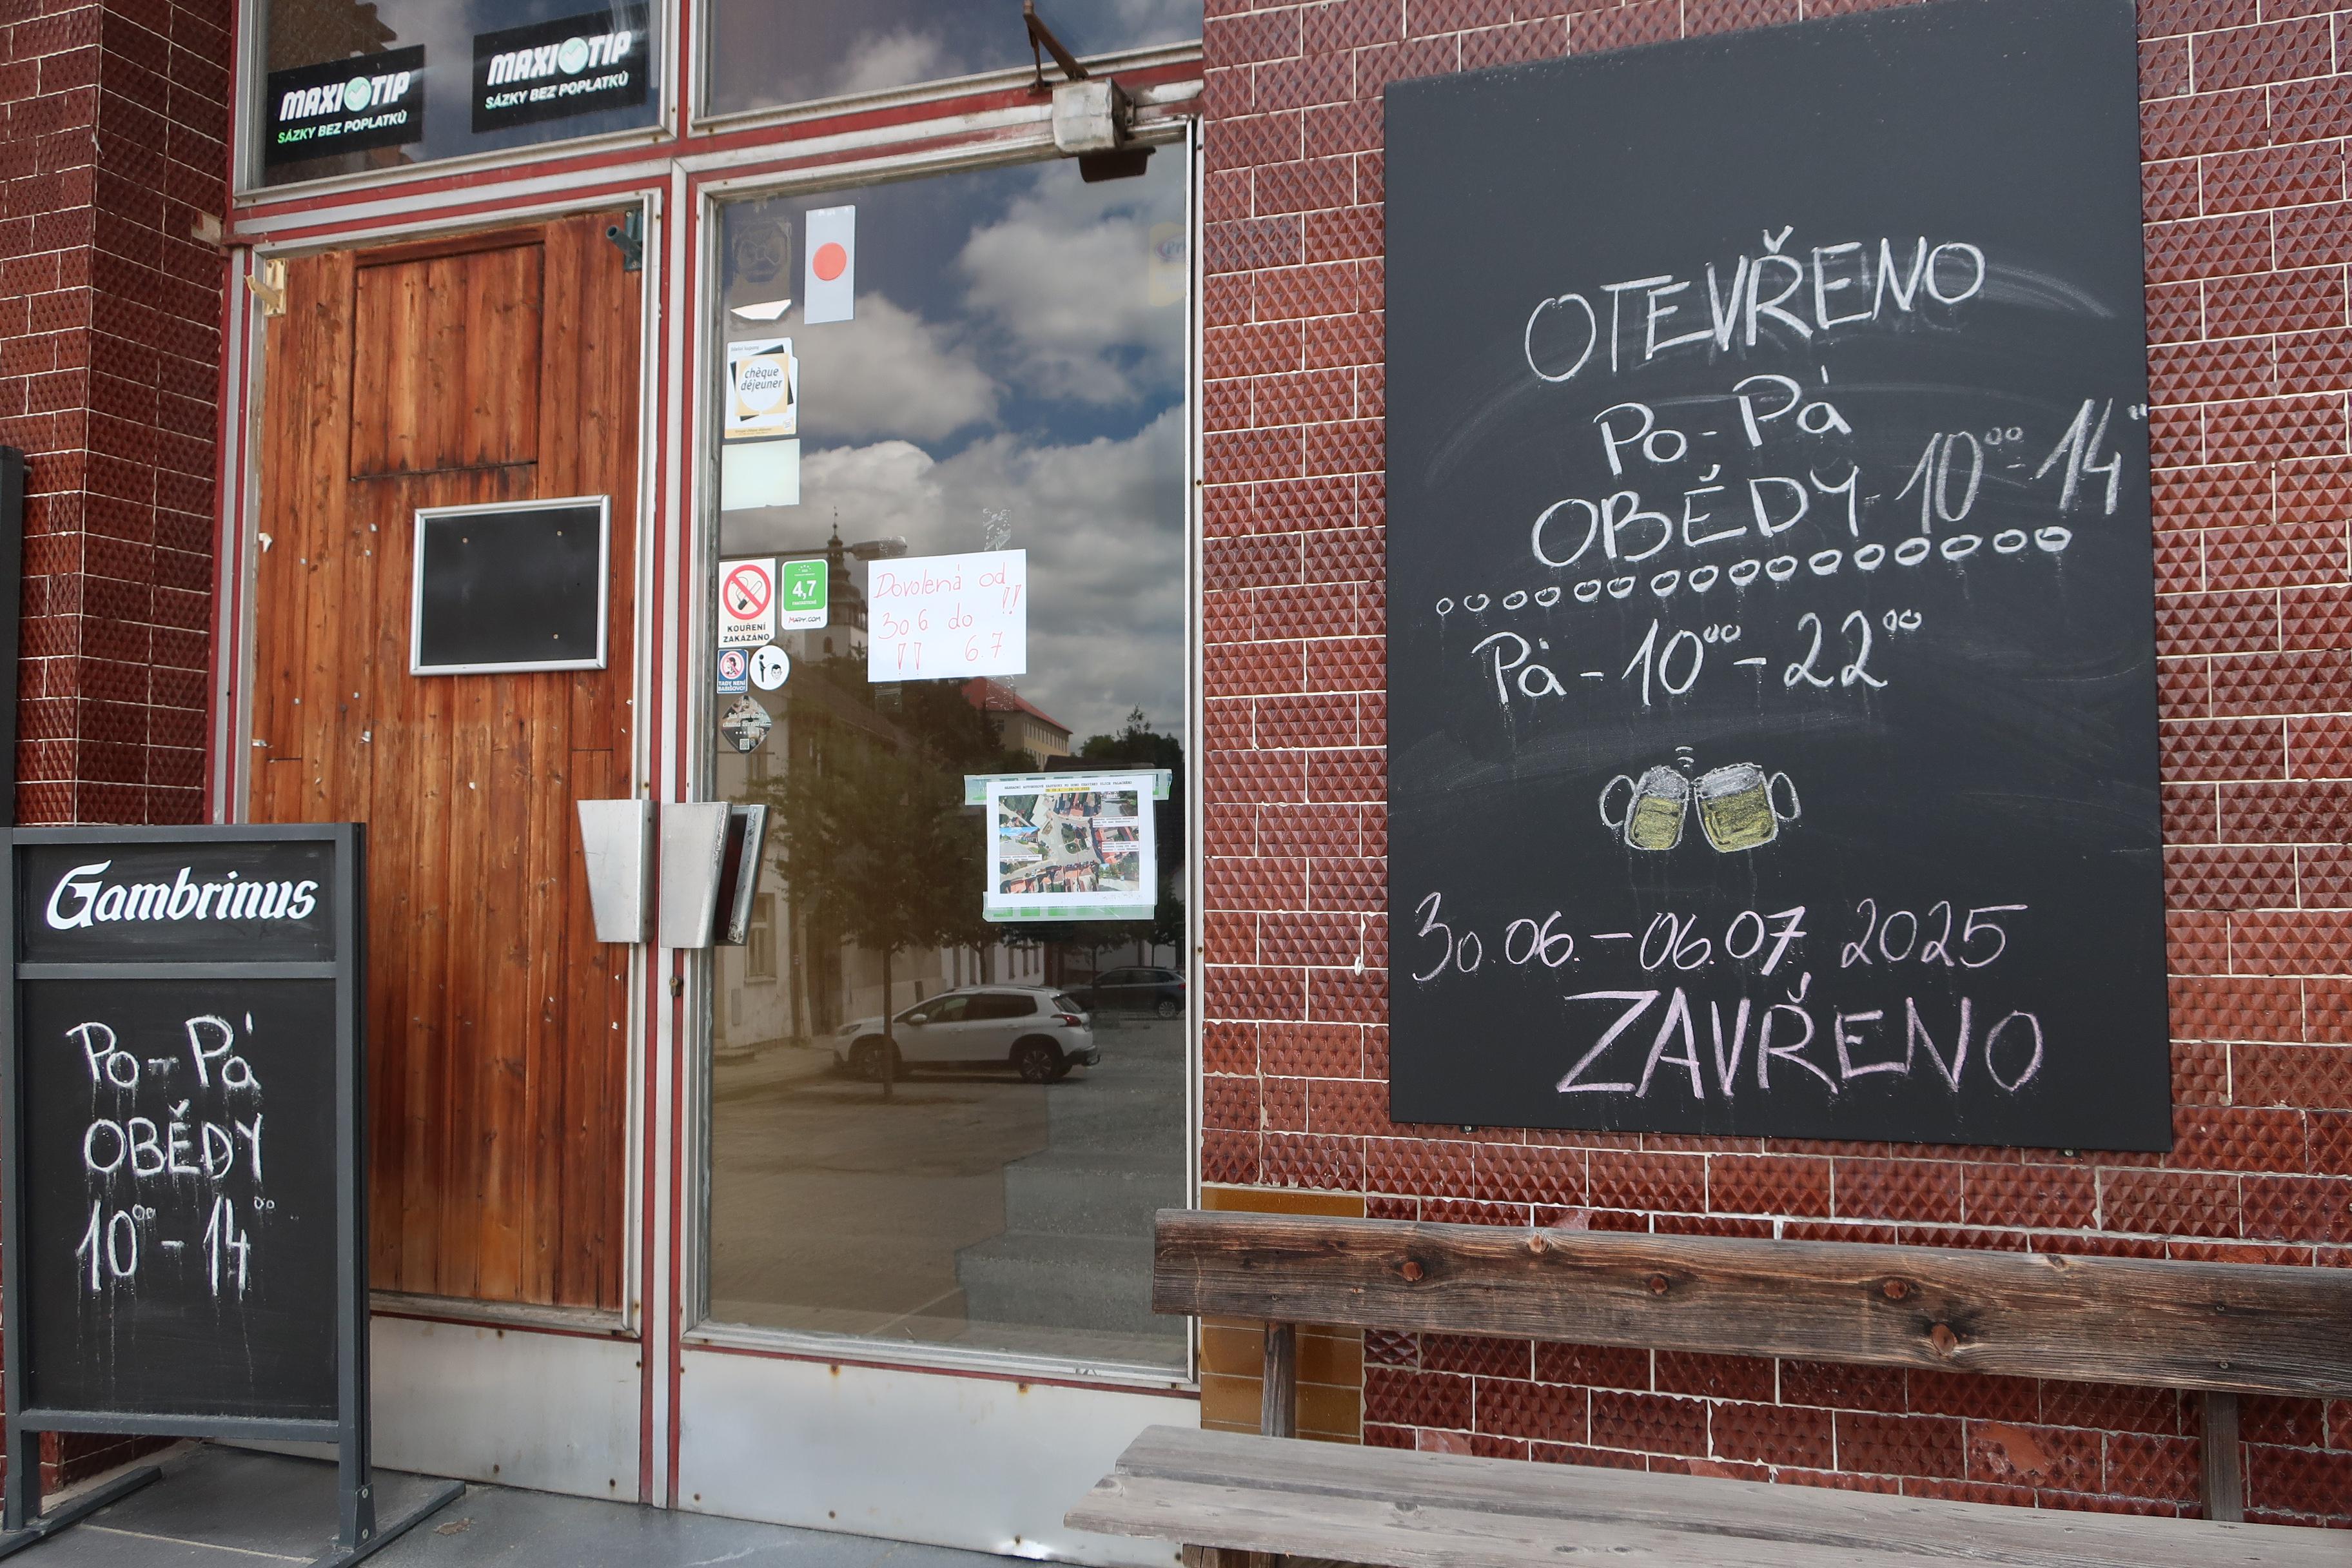 MAXI TIP
SÁZKY BEZ POPLATKŮ
MAXI TIP
SÁZKY BEZ POPLATKŮ
chèque
déjeuner
KOUŘENÍ
ZAKÁZÁNO
4,7
MAPY.COM
TADY NENÍ
BABIŠOVO!
Dovolená od
30 6 do !!
!! 6.7
Gambrinus
Po - Pá
OBĚDY
10⁰⁰ - 14⁰⁰
OTEVŘENO
Po - Pá
OBĚDY - 10⁰⁰ - 14"
Pá - 10⁰⁰ - 22⁰⁰
30.06. - 06.07, 2025
ZAVŘENO